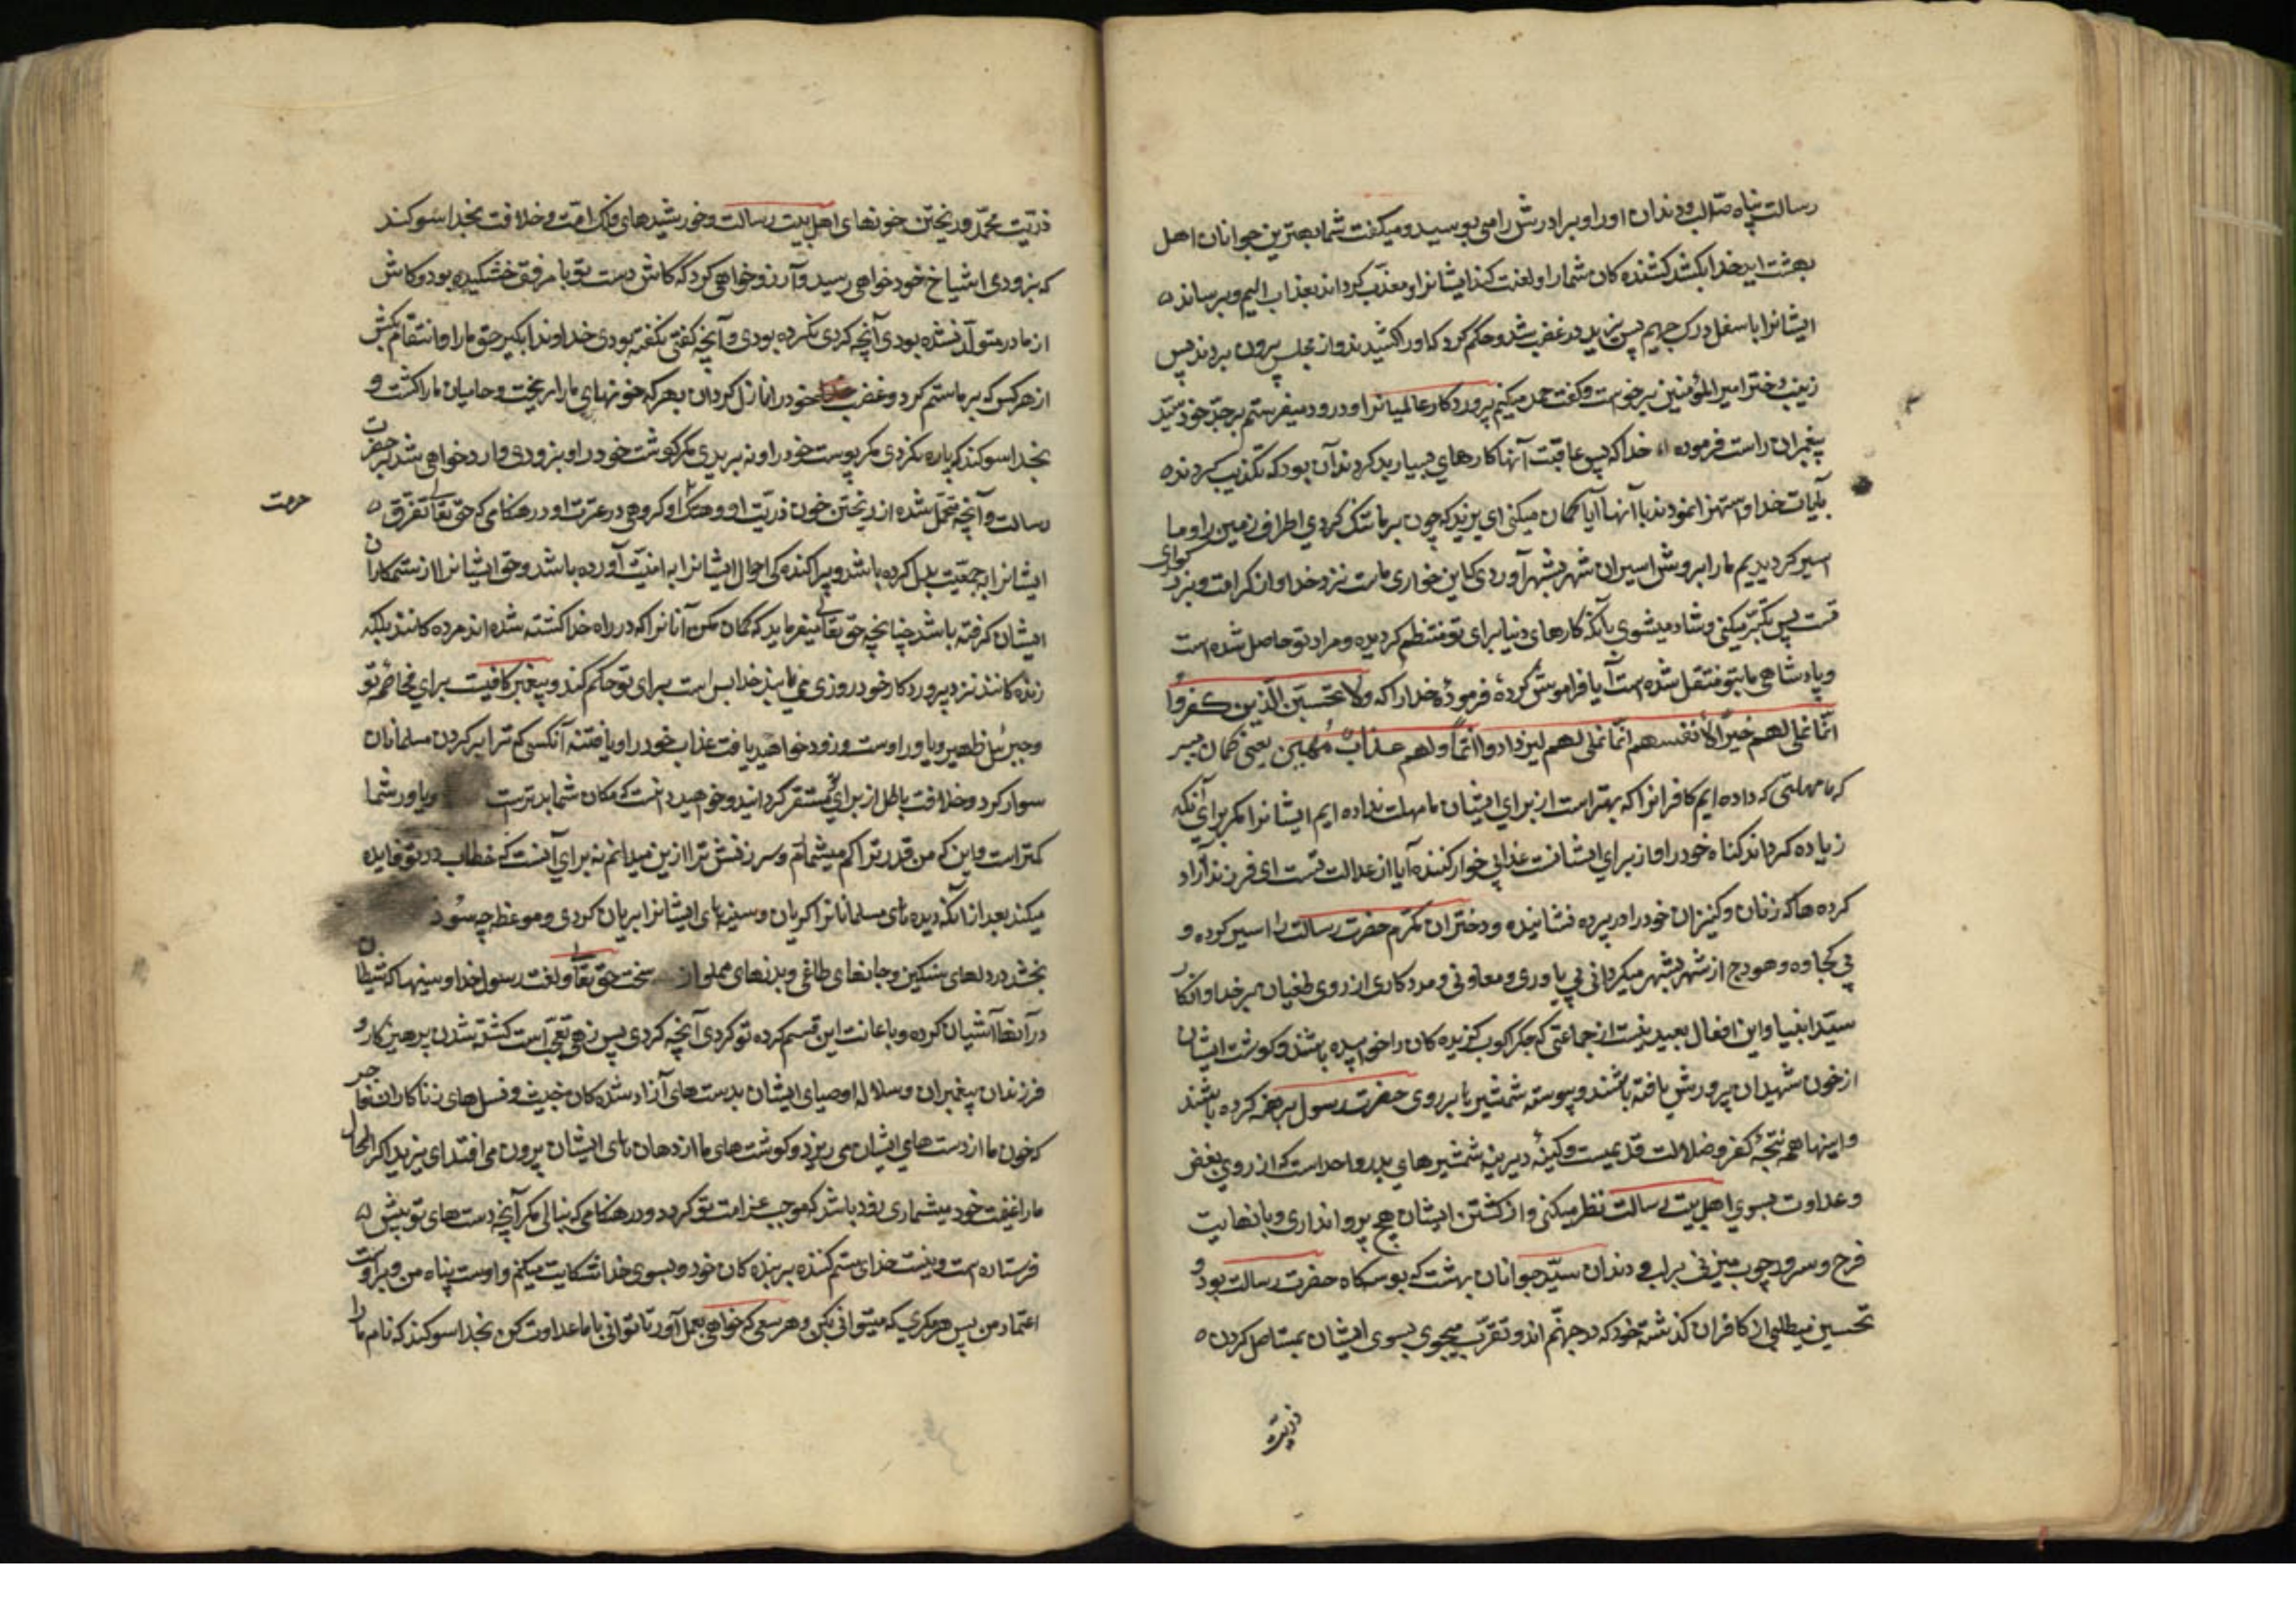 رسالت پناه صلّ لب و دندان او را و برادرش را می بوسید و میگفت شما بهترین جوانان اهل
بهشت اید خدا بکشد کشنده کان شما را و لعنت کند ایشانرا و معذّب کرداند بعذاب الیم و برساند
ایشانرا باسفل درک جهیم پس یزید در غضب شد و حکم کرد که او را کشیدند و از مجلس بیرون بردند پس
زینب دختر امیر المؤمنین برخواست و گفت حمد میکنیم پروردکار عالمیانرا و درود میفرستم بر جدّ خود سیّد
پیغمبران راست فرموده خدا که پس عاقبت آنها کارهای بسیار بد کردند آن بود که تکذیب کردند
بآیات خدا و استهزا نمودند بآنها آیا گمان میکنی ای یزید که چون بر ما تنک کردی اطراف زمین را و ما
اسیر کردیدیم ما را بروش اسیران شهر بشهر آوردی که این خواری ماست نزد خداوندان کرامت و بزرکواری
تست پس تکبّر میکنی و شاد میشوی بآنکه کارهای دنیا برای تو منتظم کردیده و مراد تو حاصل شده است
و پادشاهی ما بتو منتقل شده است آیا فراموش کردهٔ فرمودهٔ خدا را که ولا تحسبنّ الّذین کفروا
انّما نملی لهم خیرًا لأنفسهم انّما نملی لهم لیزدادوا اثماً ولهم عذابٌ مُهین یعنی گمان مبر
که ما مهلتی که داده ایم کافرانرا که بهتر است از برای ایشان ما مهلت نداده ایم ایشانرا مکر برای آنکه
زیاده کردانند کناه خود را و از برای ایشانست عذابی خوار کننده آیا از عدالت تست ای فرزند آزاد
کرده ها که زنان و کنیزان خود را در پرده نشانیده و دختران مکرّم حضرت رسالت را اسیر کرده و
بی کجاوه و هودج از شهر بشهر میکردانی بی یاوری و معاونی و مددکاری از روی طغیان بر خدا و انکار
سیّد انبیا و این افعال بعید نیست از جماعتی که جگر گوب گزیده کان را خوابیده باشند و کوشت ایشان
از خون شهیدان پرورش یافته باشند و پیوسته شمشیر با بر روی حضرت رسول برهنه کرده باشند
و اینها همه نتیجهٔ کفر و ضلالت قدیمست و کینهٔ دیرینهٔ شمشیرهای بدر و احد است که از روی بغض
و عداوت بسوی اهل بیت رسالت نظر میکنی و از کشتن ایشان هیچ پروا نداری و بانهایت
فرح و سرور چوب میزنی بر لب و دندان سیّد جوانان بهشت که بوسکاه حضرت رسالت بود و
تحسین میطلبی از کافران کذشتهٔ خود که در جهنّم اند و تقرّب میجوی بسوی ایشان بمستاصل کردن
ذریّت
ذریّت محمّد و ریختن خونهای اهل بیت رسالت و خورشیدهای فلک امامت و خلافت بخدا سوکند
که بزودی باشیاخ خود خواهی رسید و آرزو خواهی کرد که کاش دست تو با مرفق خشکیده بود و کاش
از مادر متولّد نشده بودی آنچه کردی نکرده بودی و آنچه گفتی نگفته بودی خداوندا بگیر حق ما را و انتقام بکش
از هر کس که بر ما ستم کرد و غضب خود را نازل کردان بهر که خونهای ما را ریخت و حامیان ما را کشت و
بخدا سوکند که پاره نکردی مکر پوست خود را و نه بریدی مکر کوشت خود را و بزودی وارد خواهی شد بر حضرت
رسالت و آنچه متحمّل شده از ریختن خون ذریّت او و هتک او کروهی در عترت او و در هنکامی که حق تعالی تفرّق
حرمت
ایشانرا بجمعیّت بدل کرده باشد و پراکنده کی احوال ایشانرا به امنیّت آورده باشد و حق ایشانرا از ستمکاران
ایشان کرفته باشد چنانچه حق تعالی میفرماید که گمان مکن آنانرا که در راه خدا کشته شده اند مرده کانند بلکه
زنده کانند نزد پروردکار خود روزی می یابند خدا بس است برای تو حکم کند و پیغمبر کافیست برای مخاصمهٔ تو
و جبرئیل ظهیر و یاور اوست و زود خواهید یافت عذاب خود را و یافتنه آنکسی که ترا بر کردن مسلمانان
سوار کرد و خلافت باطل از برای تو مستقر گردانید و خواهید دانست که مکان شما بدتر است و یاور شما
کمتر است و این که من قدر ترا کم میشمارم و سرزنش ترا ازین میدانم نه برای آنست که خطاب در تو فایده
میکند بعد از انکه دیده های مسلمانانرا گریان و سینه های ایشانرا بریان کردی و موعظه چه سود
بخشد در دلهای سنکین و جانهای طاغی و بدنهای مملو از سخت حق تعالی و لعنت رسول خدا و سینها که شیطان
در آنها آشیان کرده و باعانت این قسم کرده تو کردی آنچه کردی پس زهی تعجّب است کشته شدن پرهیزکار و
فرزندان پیغمبران و سلاله اوصیای ایشان بدست های آزاد شده کان خبیث و نسل های زناکاران فاجر
که خون ما از دست های ایشان می ریزد و کوشت های ما از دهان های ایشان بیرون می افتد ای یزید اکر الحال
ما را غنیمت خود میشماری زود باشد که موجب غرامت تو کردد و در هنکامی که نیابی مکر آنچه دست های تو پیش
فرستاده است و نیست خدای ستم کننده بر بنده کان خود و بسوی خدا شکایت میکنم و اوست پناه من و بر اوست
اعتماد من پس هر مکری که میتوانی بکن و هر سعی که خواهی بعمل آور تا توانی با ما عداوت کن بخدا سوکند که نام ما را